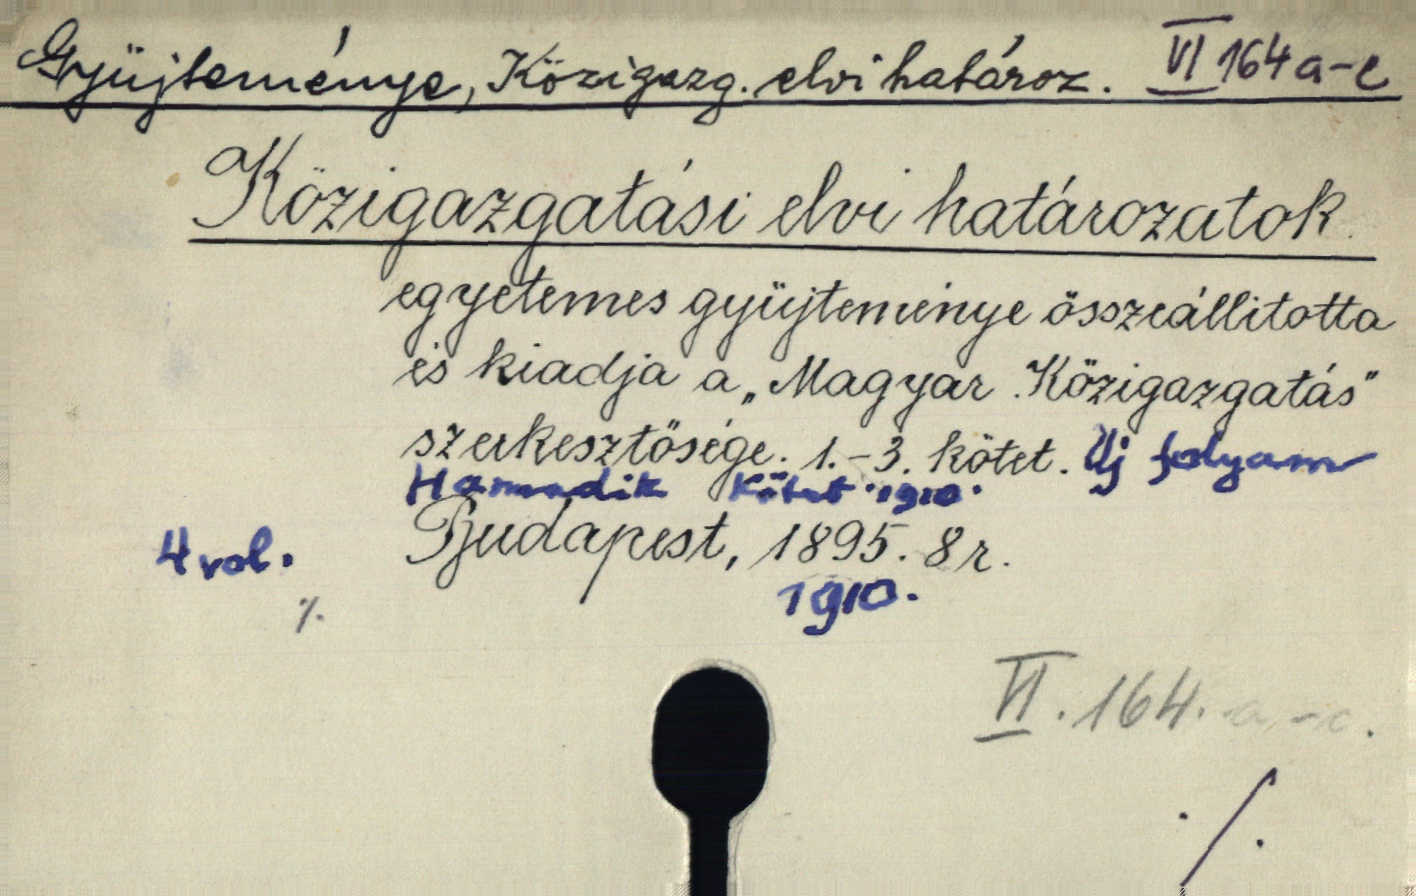 Gyüjteménye, Közigazg. elvi határoz. VI 164 a-c
Közigazgatási elvi határozatok
egyetemes gyüjteménye összeállitotta
és kiadja a „Magyar Közigazgatás"
szerkesztősége. 1.-3. kötet. Uj folyam
Harmadik Kötet 1910.
Budapest, 1895. 8 r.
4 vol.
1910.
./.
VI. 164. a-c.
./.